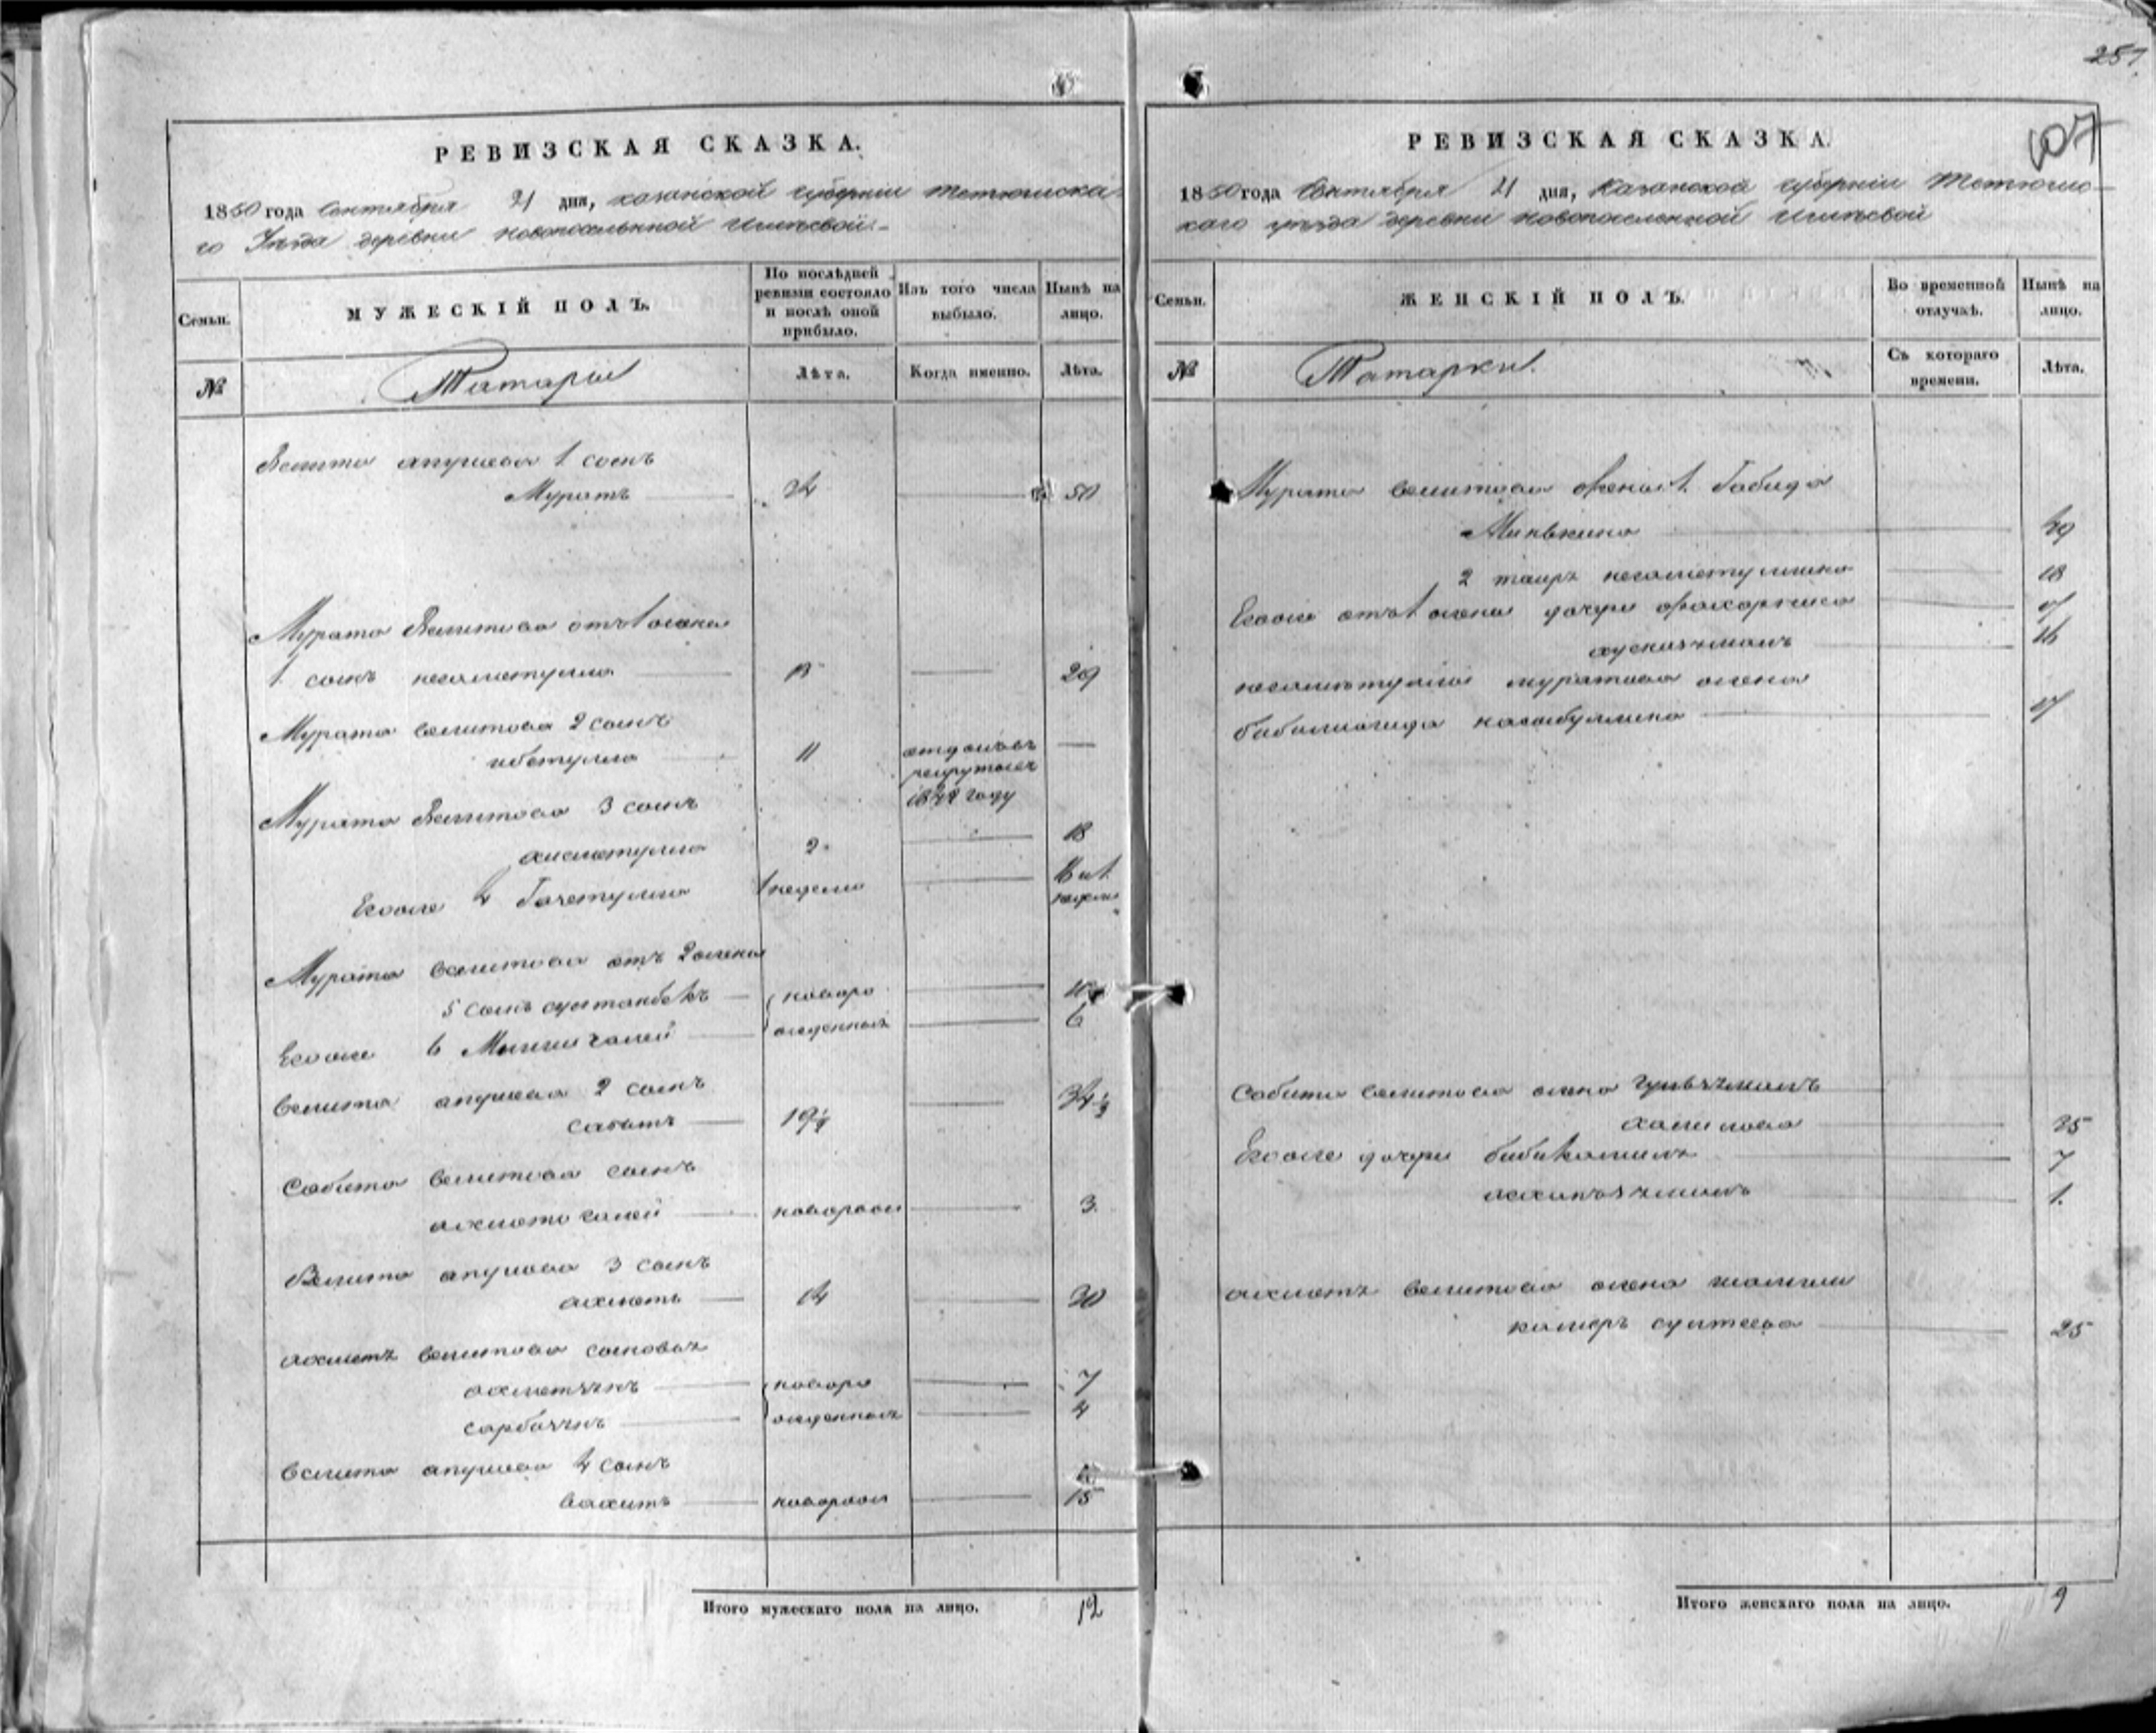 РЕВИЗСКАЯ СКАЗКА.
1850 года Сентября 21 дня, казанской губернии тетюшска-
го Уезда деревни новопоселенной
Семьи.
МУЖЕСКІЙ ПОЛЪ.
По послѣдней ревизіи состояло и послѣ оной прибыло.
Изъ того числа выбыло.
Нынѣ на лицо.
№
Татары
Лѣта.
Когда именно.
Лѣта.
Велита апушева 1 сынъ
Муратъ 34 50
Мурата Велитова отъ 1 жены
1 сынъ 13 29
Мурата велитова 2 сынъ
ибетулла 11 отданъ въ
рекруты въ
184 году
Мурата Велитова 3 сынъ
ахметулла 2 18
Егоже 4 1 недели 16 и 1 недели
Мурата велитова отъ 2 жены
5 сынъ султанбекъ новоро
Егоже 6 Минигалей жденныя 6
велита апушева 2 сынъ
сабитъ 19½ 34½
Сабита велитова сынъ
ахметгалей новорож 3
Велита апушева 3 сынъ
ахметъ 14 30
ахметъ велитова сыновья
ахметзянъ новоро 7
сарбазянъ жденныя 4
велита апушева 4 сынъ
вахитъ новорож 15
Итого мужескаго пола на лицо. 12
257
107
РЕВИЗСКАЯ СКАЗКА.
1850 года Сентября 21 дня, Казанской губерніи Тетюшс-
каго уезда деревни новопоселенной
Семьи.
ЖЕНСКІЙ ПОЛЪ.
Во временной отлучкѣ.
Нынѣ на лицо.
№
Татарки
Съ котораго времени.
Лѣта.
Мурата велитова жена 1 Габида
Минькина 49
2 18
Егоже отъ 1 жены дочери
16
муратова жена
Сабита велитова жена гульзяманъ
халилова 25
Егоже дочери бибикамиля 7
1.
ахметъ велитова жена
камеръ султеева 25
Итого женскаго пола на лицо. 9